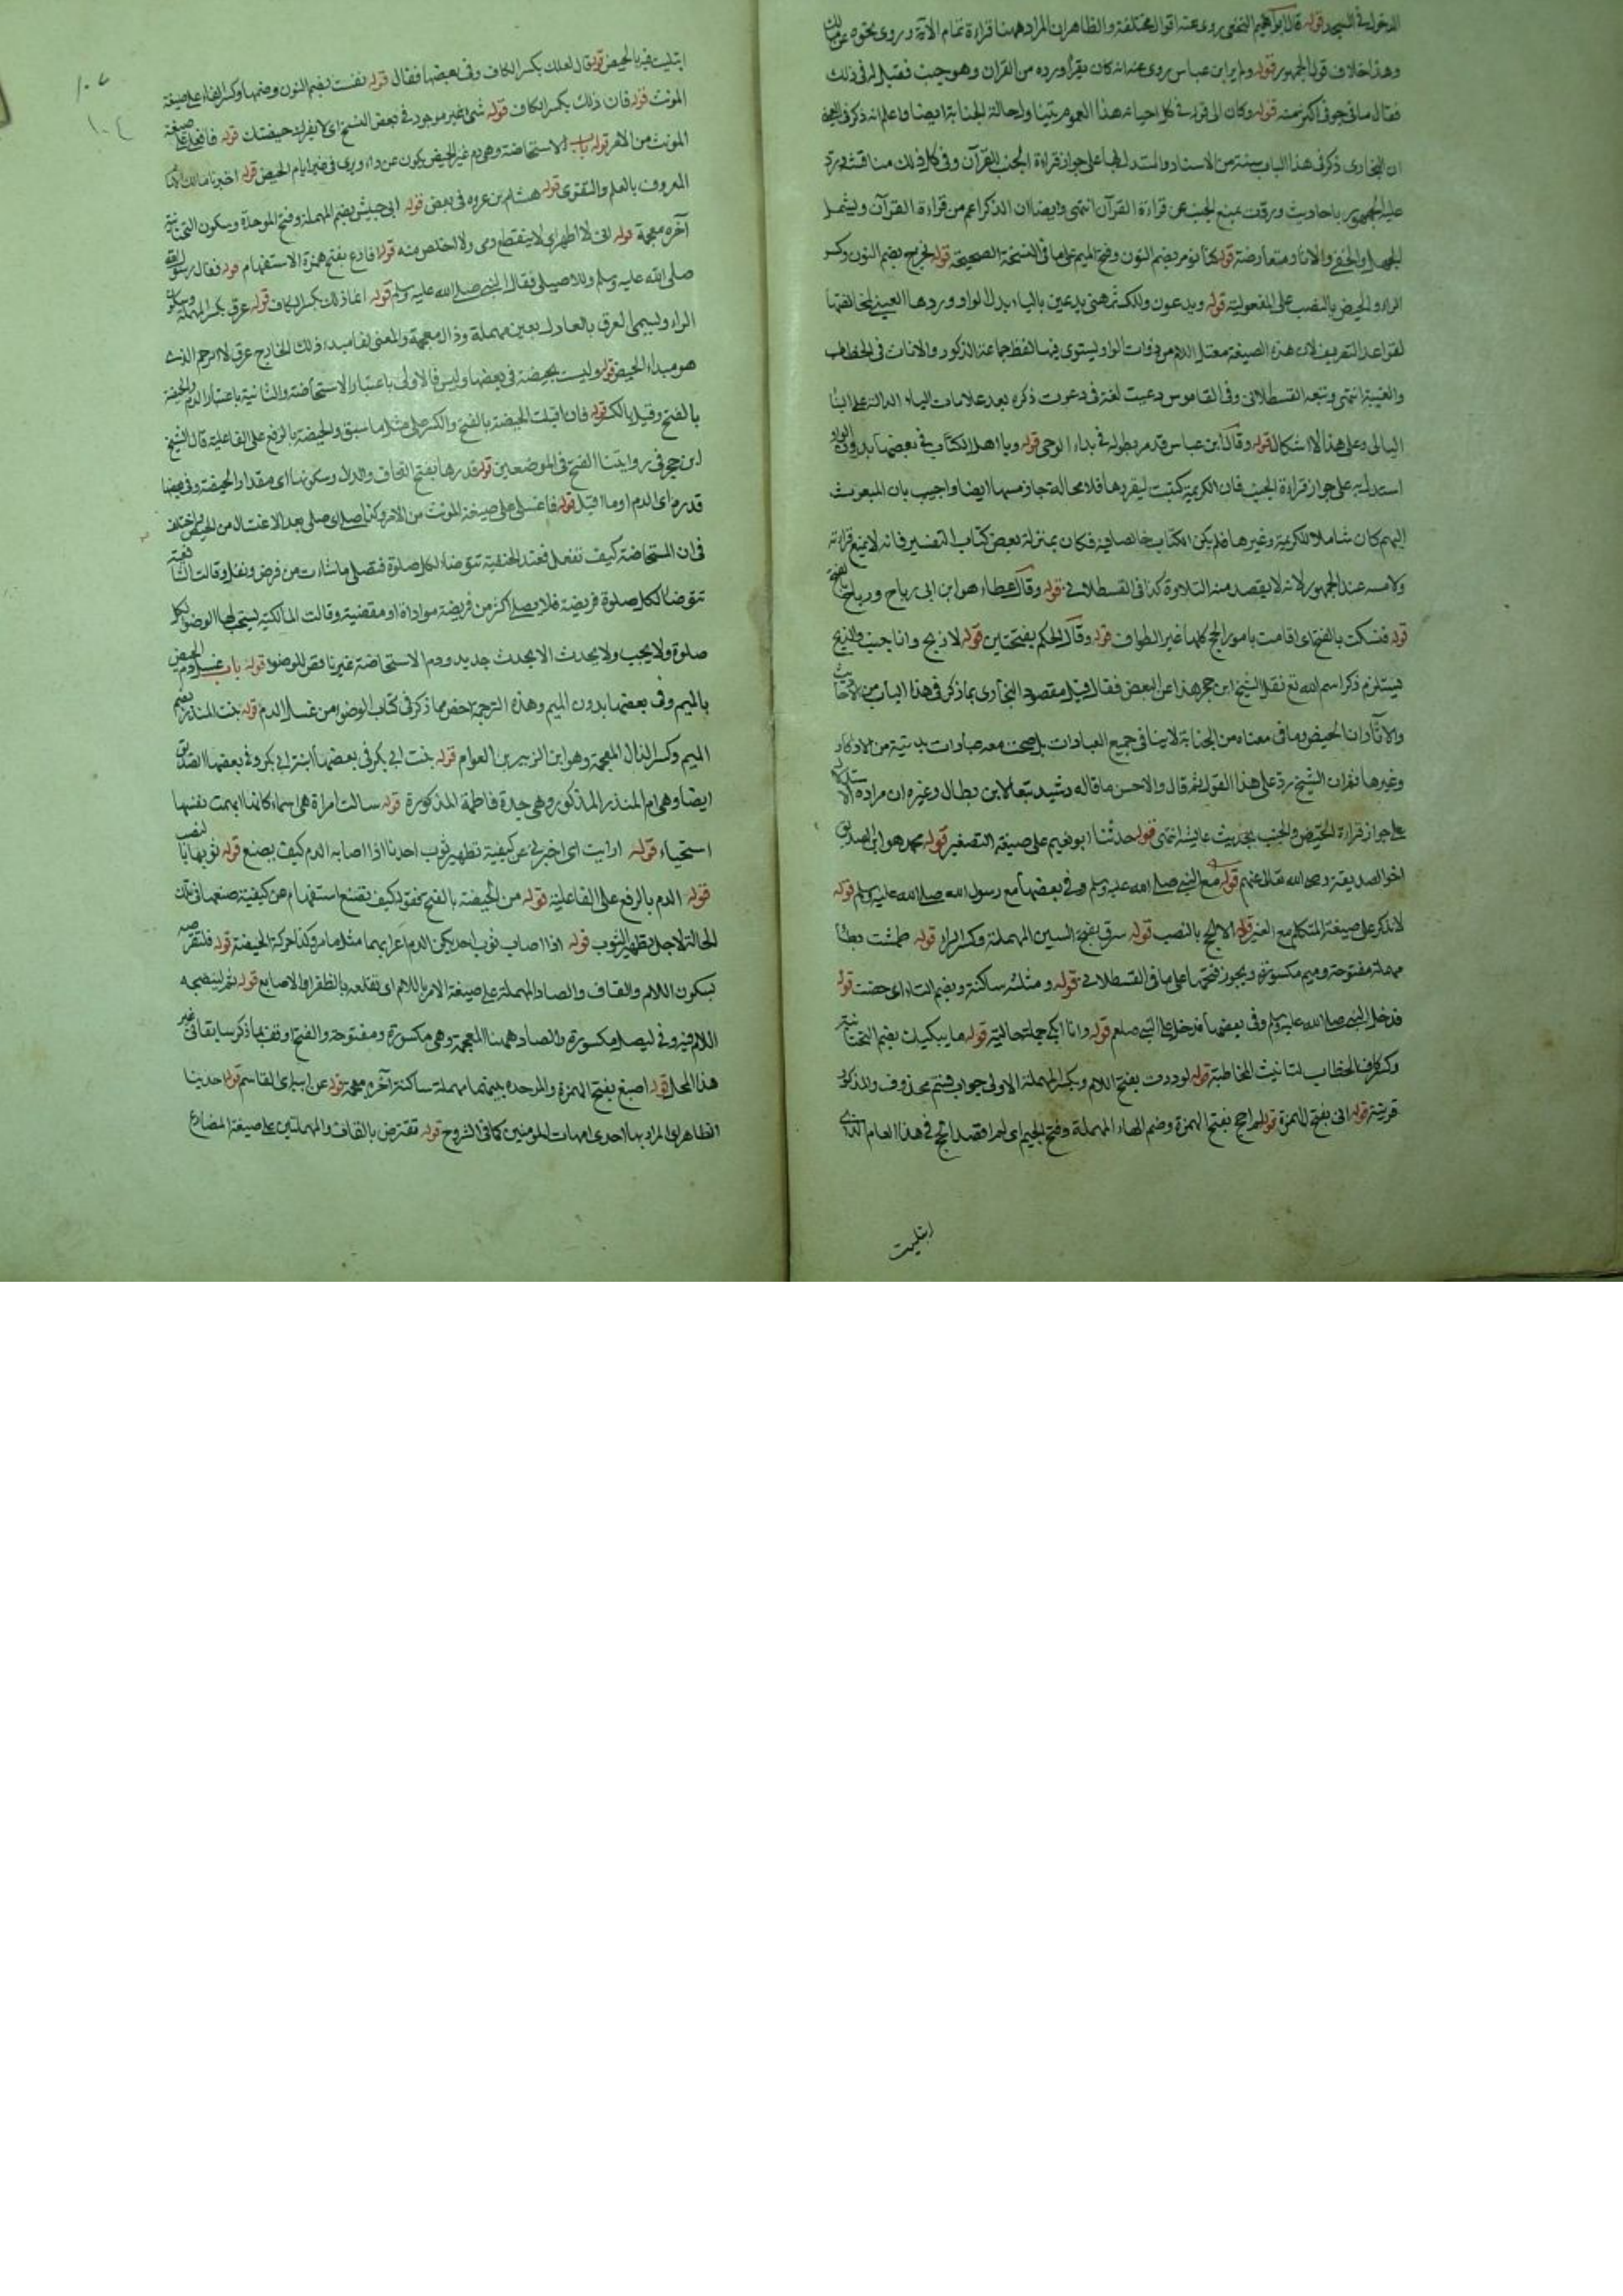 الدخول في المسجد قوله قال ابراهيم النخعي روى عنه اقوال مختلفة والظاهر ان المراد ههنا قراءة تمام الآية وروى نحوه عن مالك
وهذا خلاف قول الجمهور قوله ولم ير ابن عباس روى عنه انه كان يقرأ ورده من القران وهو جنب فقيل له في ذلك
فقال ما في جوفي اكثر منه قوله وكان الى قوله في كل احيانه هذا العموم يتناول حالة الجنابة ايضا واعلم انه ذكر في
ان البخارى ذكر في هذا الباب ستة من الاسناد واستدل بها على جواز قراءة الجنب للقرآن وفي كل ذلك مناقشة ورد
عليه الجمهور باحاديث وردت بمنع الجنب عن قراءة القرآن انتهى وايضا ان الذكر اعم من قراءة القرآن ويشمل
الجهر والخفي والاثار متعارضة قوله كنا نؤمر بضم النون وفتح الميم على ما في النسخة الصحيحة قوله نخرج بضم النون وكسر
الراء والحيض بالنصب على المفعولية قوله ويدعون وللكشميهني يدعين بالياء بدل الواو وردها العيني لمخالفتها
لقواعد التصريف لان هذه الصيغة معتل اللام من ذوات الواو يستوى فيها لفظ جماعة الذكور والاناث في الخطاب
والغيبة انتهى وتبعه القسطلاني وفي القاموس دعيت لغة في دعوت ذكره بعد علامات الياء الدالة على البناء
اليائي وعلى هذا لا اشكال قوله وقال ابن عباس قد مر بطوله في بداء الوحي قوله ويا اهل الكتاب في بعضها بدون الواو
استدل به على جواز قراءة الجنب فان الكريمة كتبت ليقرؤها فلا محالة جاز مسها ايضا واجيب بان المبعوث
اليهم كان شاملا للكريمة وغيرها فلم يكن الكتاب خالصا فيه فكان بمنزلة بعض كتاب التفسير فانه لا يمنع قراءته
ولا مسه عند الجمهور لانه لا يقصد منه التلاوة كذا في القسطلاني قوله وقال عطاء هو ابن ابي رباح ورباح بالفتح
قوله فنسكت بالفتح اى اقامت بامور الحج كلها غير الطواف قوله وقال الحكم بفتحتين قوله لاذبح وانا جنب والذبح
يستلزم ذكر اسم الله تع نقل الشيخ ابن حجر هذا عن البعض فقال قيل مقصود البخارى بما ذكر في هذا الباب من الاحاديث
والآثار ان الحيض وما في معناه من الجنابة لا ينافي جميع العبادات بل صحت معه عبادات بدنية من الاذكار
وغيرها نفران الشيخ رد على هذا القول ثم قال والاحسن ما قاله رشيد تبعا لابن بطال وغيره ان مراده الاستدلال
على جواز قراءة الحيض والجنب بحديث عايشة انتهى قوله حدثنا ابو نعيم على صيغة التصغير قوله محمد هو ابن الصديق
اخو الصديقة رضى الله تعالى عنهم قوله مع النبي صلى الله عليه وسلم وفي بعضها مع رسول الله صلى الله عليه وسلم قوله
لا نذكر على صيغة المتكلم مع الغير قوله الا الحج بالنصب قوله سرق بفتح السين المهملة وكسر الراء قوله طمثت بطاء
مهملة مفتوحة وميم مكسورة ويجوز فتحها على ما في القسطلاني قوله ومثلثة ساكنة وبضم التاء اى حضت قوله
فدخل النبي صلى الله عليه وسلم وفي بعضها فدخل علي النبي صلعم قوله وانا ابكي جملة حالية قوله ما يبكيك بضم التحتانية
وكسر كاف الخطاب لتانيث المخاطبة قوله لوددت بفتح اللام وبكسر المهملة الاولى جواب قسم محذوف والمذكور
قرينته قوله اني بفتح الهمزة قوله لم احج بفتح الهمزة وضم الحاء المهملة وفتح الجيم اى لم اقصد الحج في هذا العام الذي
ابتليت
ابتليت فيه بالحيض قوله قال لعلك بكسر الكاف وفي بعضها فقال قوله نفست بضم النون وضمها وكسر الفاء على صيغة
المونث قوله فان ذلك بكسر الكاف قوله شئ غير موجود في بعض النسخ اى لا يفرك حيضتك قوله فافعلي على صيغة
المونث من الامر قوله باب الاستحاضة وهو دم غير الحيض يكون عن داء ويرى في غير ايام الحيض قوله اخبرنا مالك
المعروف بالعلم والتقوى قوله هشام بن عروه في بعض قوله ابي حبيش بضم المهملة وفتح الموحدة وسكون التحتانية
آخره معجمة قوله اني لا اطهر اى لا ينقطع دمي ولا اخلص منه قوله افادع بفتح همزة الاستفهام قوله فقال رسول الله
صلى الله عليه وسلم وللاصيلي فقال النبي صلى الله عليه وسلم قوله انما ذلك بكسر الكاف قوله عرق بكسر المهملة وسكون
الراء ويسمى العرق بالعاذل بعين مهملة وذال معجمة والمعنى لفاطمة ذلك الخارج عرق لا الرحم الذى
هو مبداء الحيض قوله وليست بحيضة في بعضها وليس فالاولى باعتبار الاستحاضة والثانية باعتبار الدم والحيضة
بالفتح وقيل بالكسر قوله فان اقبلت الحيضة بالفتح والكسر على مثل ما سبق والحيضة بالرفع على الفاعلية قال الشيخ
ابن حجر في روايتنا الفتح في الموضعين قوله قدرها بفتح القاف والدال وسكونها اى مقدار الحيضة وفي بعضها
قدره اى الدم اوما اقبل قوله فاغسلي على صيغة المونث من الامر وكذا صلى اى صلى بعد الاغتسال من الحيض واختلف
في ان المستحاضة كيف تفعل فعند الحنفية تتوضأ لكل صلوة فتصلى ما شاءت من فرض ونفل وقالت الشافعية
تتوضأ لكل صلوة فريضة فلا يصلى اكثر من فريضة موداة او مقضية وقالت المالكية يستحب لها الوضوء لكل
صلوة ولا يجب ولا يحدث الا بحدث جديد ودم الاستحاضة غير ناقض للوضوء قوله باب غسل دم الحيض
بالميم وفي بعضها بدون الميم وهذه الترجمة اخص مما ذكر في كتاب الوضوء من غسل الدم قوله بنت المنذر بضم
الميم وكسر الذال المعجمة وهو ابن الزبير بن العوام قوله بنت ابي بكر في بعضها ابنة ابي بكر وفي بعضها الصديق
ايضا وهي ام المنذر المذكور وهي جدة فاطمة المذكورة قوله سالت امراة هي اسماء كانها ابهمت نفسها
استحياء قوله ارايت اى اخبرني عن كيفية تطهير ثوب احدنا اذا اصابه الدم كيف يصنع قوله ثوبها بالنصب
قوله الدم بالرفع على الفاعلية قوله من الحيضة بالفتح كيف تصنع استفهام عن كيفية صنعها في تلك
الحالة لاجل تطهير الثوب قوله اذا اصاب ثوب احديكن الدم اعرابهما مثل ما مر وكذا حركة الحيضة قوله فلتقرصه
بسكون اللام والقاف والصاد المهملة على صيغة الامر باللام اى تقلعه بالظفر او الاصابع قوله ثم لتنضحه
اللام فيه وفي ليصل مكسورة والضاد ههنا المعجمة وهي مكسورة ومفتوحة والفتح اوفق بما ذكر سابقا في غير
هذا المحل قوله اصبغ بفتح الهمزة والموحدة بينهما مهملة ساكنة آخره معجمة قوله عن ابيه اى القاسم قوله احدينا
الظاهر ان المراد بها احدى امهات المومنين كما في الشروح قوله تقترص بالقاف والمهملتين على صيغة المضارع
١٠٧
١٠٤